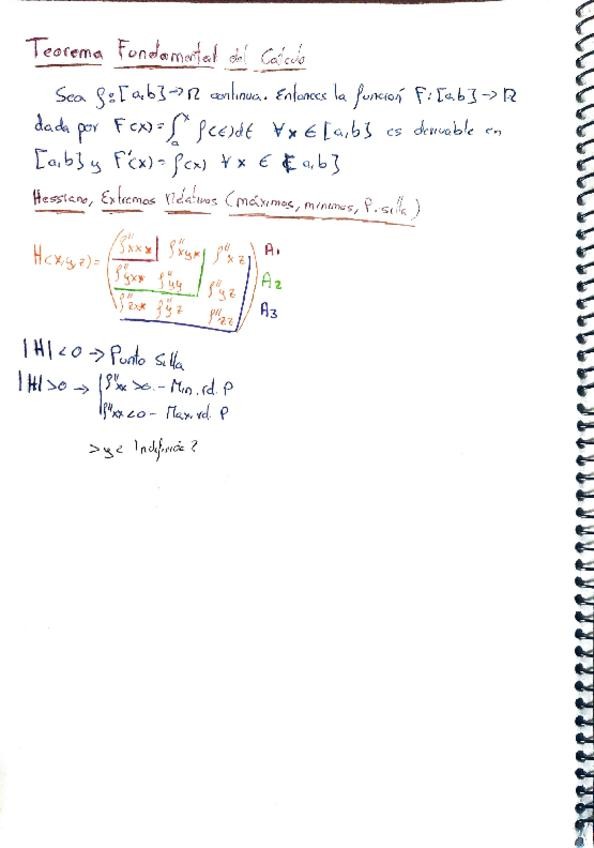 Teorema Fundamental del Cálculo
Sea f: [a,b] → R continua. Entonces la función F: [a,b] → R
dada por F(x) = ∫ₐˣ f(t)dt ∀x ∈ [a,b] es derivable en
[a,b] y F'(x) = f(x) ∀x ∈ [a,b]
Hessiano, Extremos Relativos (máximos, mínimos, P. silla)
H(x,y,z) = ( f''xx f''xy f''xz ) A1
f''yx f''yy f''yz A2
f''zx f''yz f''zz A3
|H| < 0 → Punto silla
|H| > 0 → f''xx > 0 - Min. rel. P
f''xx < 0 - Max. rel. P
> y <